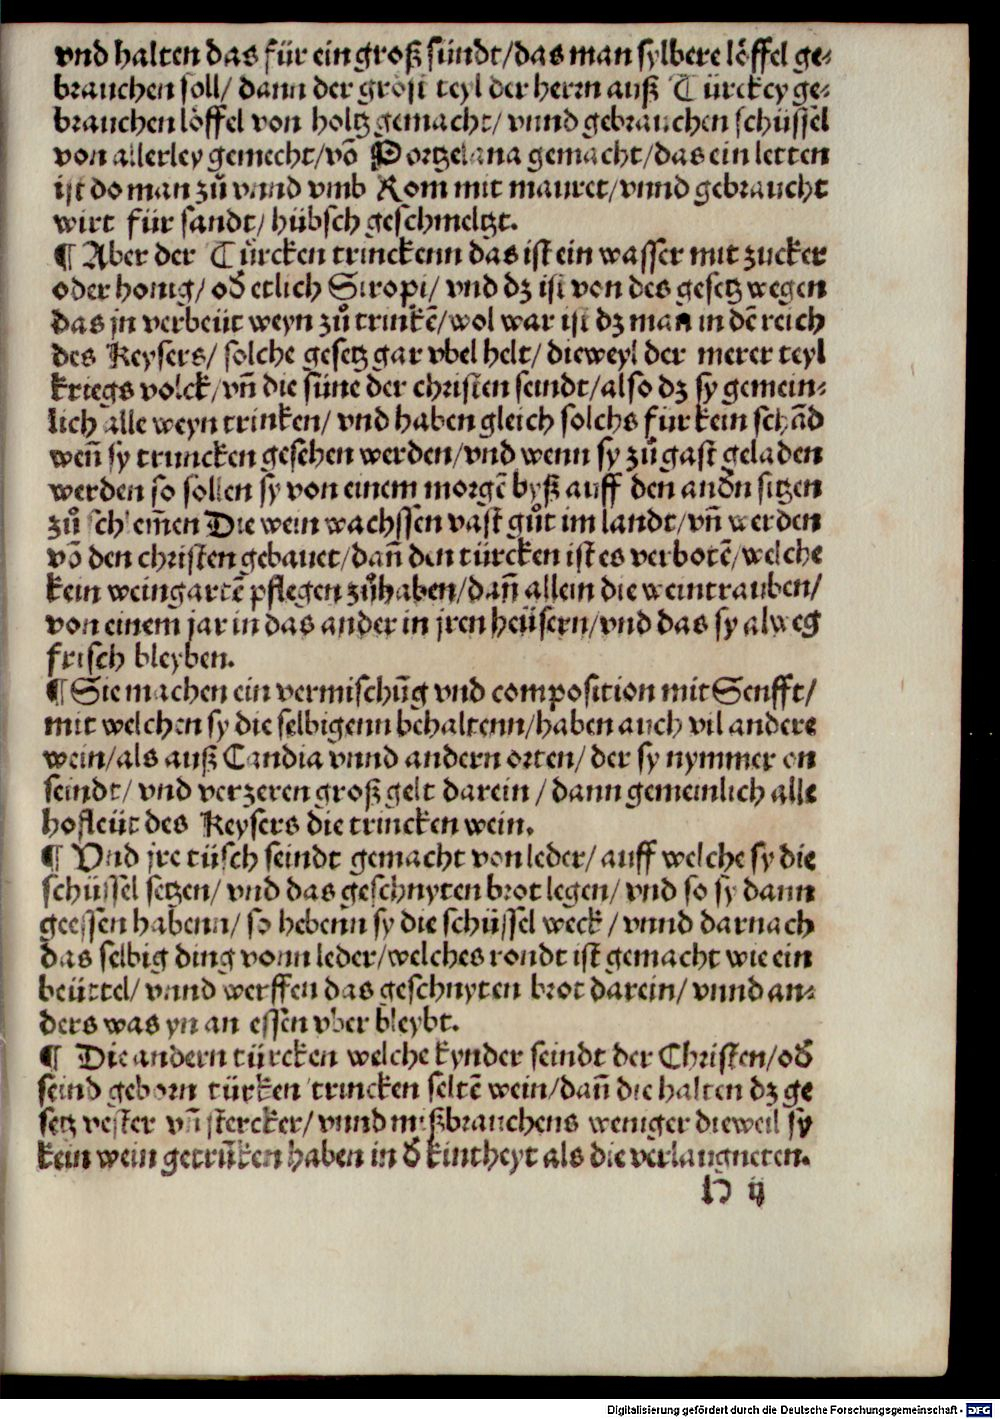 vnd halten das für ein groß sündt/das man sylbere löffel ge⸗
brauchen soll/ dann der gröst teyl der herrn auß Türckey ge⸗
brauchen löffel von holtz gemacht/ vnnd gebrauchen schüssel
von allerley gemecht/võ Portzelana gemacht/das ein letten
ist do man zů vnnd vmb Rom mit mauret/vnnd gebraucht
wirt für sandt/ hübsch geschmeltzt.
¶ Aber der Türcken trinckenn das ist ein wasser mit zucker
oder honig/ od̕ etlich Siropi/ vnd dz ist von des gesetz wegen
das jn verbeüt weyn zů trinkẽ/wol war ist dz man in dẽ reich
des Keysers/ solche gesetz gar vbel helt/ dieweyl der merer teyl
kriegs volck/vñ die süne der christen seindt/also dz sy gemein⸗
lich alle weyn trinken/ vnd haben gleich solchs für kein schãd
weñ sy truncken gesehen werden/vnd wenn sy zů gast geladen
werden so sollen sy von einem morgẽ byß auff den and̕n sitzen
zů schlem̃en Die wein wachssen vast gůt im landt/vñ werden
võ den christen gebauet/dañ den türcken ist es verbotẽ/welche
kein weingartẽ pflegen zůhaben/dañ allein die weintrauben/
von einem jar in das ander in jren heüsern/vnd das sy alweg
frisch bleyben.
¶ Sie machen ein vermischũg vnd composition mit Senfft/
mit welchen sy die selbigenn behaltenn/haben auch vil andere
wein/als auß Candia vnnd andern orten/ der sy nymmer on
seindt/ vnd verzeren groß gelt darein / dann gemeinlich alle
hofleüt des Keysers die trincken wein.
¶ Vnd jre tüsch seindt gemacht von leder/ auff welche sy die
schüssel setzen/ vnd das geschnyten brot legen/ vnd so sy dann
geessen habenn/ so hebenn sy die schüssel weck / vnnd darnach
das selbig ding vonn leder/welches rondt ist gemacht wie ein
beüttel/ vnnd werffen das geschnyten brot darein/ vnnd an⸗
ders was yn an essen vber bleybt.
¶ Die andern türcken welche kynder seindt der Christen/od̕
seind geborn türken trincken seltẽ wein/dañ die halten dz ge
setz vester vñ stercker/ vnnd mißbrauchens weniger dieweil sy
kein wein getrũken haben in d̕ kintheyt als die verlaugneten.
H ij
Digitalisierung gefördert durch die Deutsche Forschungsgemeinschaft - DFG